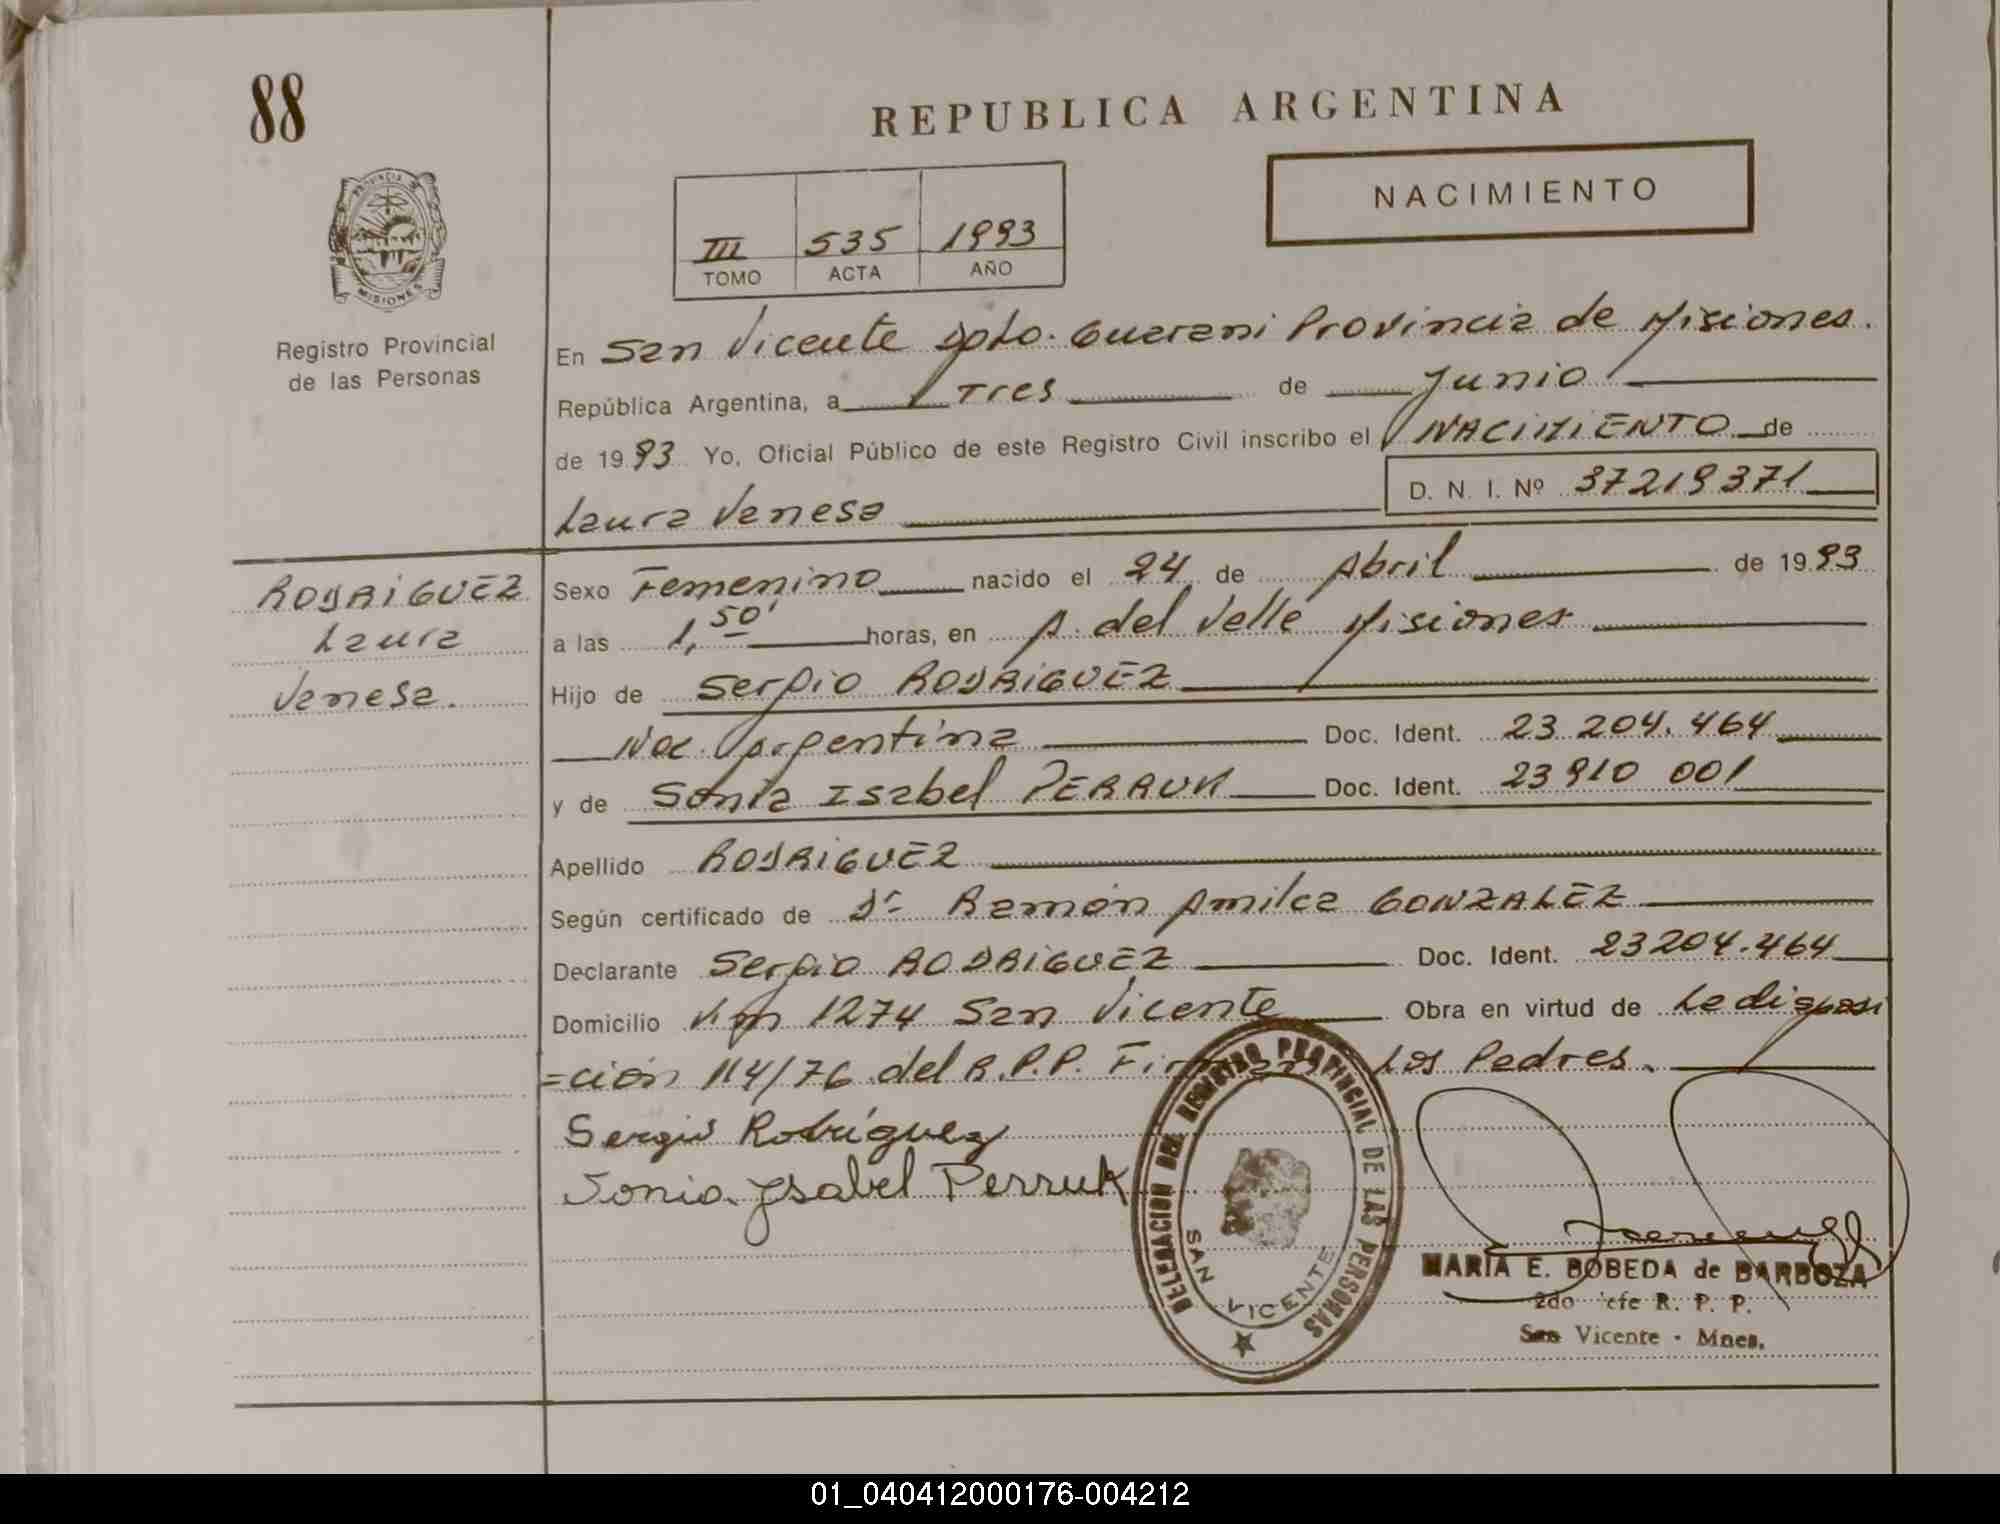 88
REPUBLICA ARGENTINA
NACIMIENTO
PROVINCIA DE
MISIONES
III 535 1993
TOMO ACTA AÑO
Registro Provincial
de las Personas
En San Vicente Dpto. Guarani Provincia de Misiones.
República Argentina, a Tres de Junio
de 1993 Yo, Oficial Público de este Registro Civil inscribo el NACIMIENTO de
D. N. I. Nº 37219371
Laura Vanesa
RODRIGUEZ
Laura
Vanesa.
Sexo Femenino nacido el 24 de Abril de 1993
a las 1,50' horas, en A. del Valle Misiones
Hijo de Sergio RODRIGUEZ
Nac. Argentina Doc. Ident. 23.204.464
y de Sonia Isabel PERRUK Doc. Ident. 23910 001
Apellido RODRIGUEZ
Según certificado de Dr Ramón Amilca GONZALEZ
Declarante Sergio RODRIGUEZ Doc. Ident. 23204.464
Domicilio Km 1274 San Vicente Obra en virtud de La disposi
=ción 114/76 del R.P.P. Firman Los Padres.
Sergio Rodríguez
Sonia Ysabel Perruk
DELEGACION DEL REGISTRO PROVINCIAL DE LAS PERSONAS
SAN VICENTE
MARIA E. BOBEDA de BARBOZA
2do Jefe R. P. P.
San Vicente - Mnes.
01_040412000176-004212